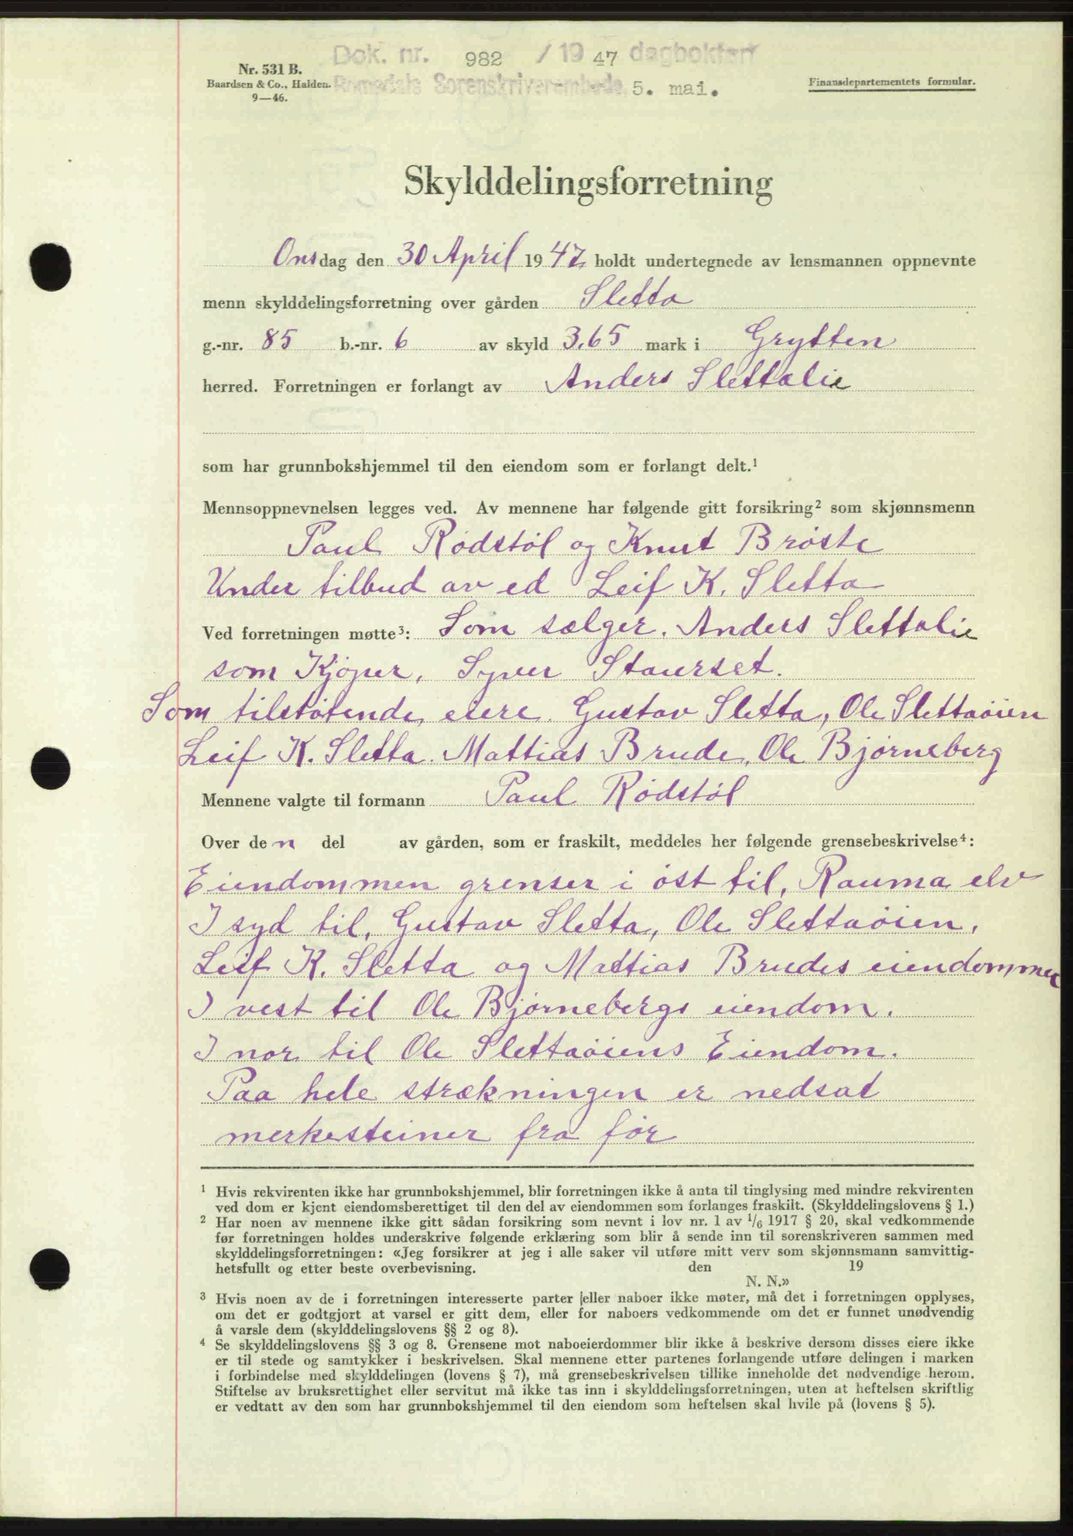 Dok. nr. 982 / 19 47 dagboken
Nr. 531 B.
Baardsen & Co., Halden.
9—46.
Romsdals Sorenskriverembede 5. mai.
Finansdepartementets formular.
Skylddelingsforretning
Onsdag den 30 April 1947 holdt undertegnede av lensmannen oppnevnte
menn skylddelingsforretning over gården Sletta
g.-nr. 85 b.-nr. 6 av skyld 3,65 mark i Grytten
herred. Forretningen er forlangt av Anders Slettalie
som har grunnbokshjemmel til den eiendom som er forlangt delt.¹
Mennsoppnevnelsen legges ved. Av mennene har følgende gitt forsikring² som skjønnsmenn
Paul Rødstøl og Knut Brøste
Under tilbud av ed Leif K. Sletta
Ved forretningen møtte³: Som sælger. Anders Slettalie
som Kjøper, Syver Stavrset.
Som tilstøtende eiere. Gustav Sletta, Ole Slettaøien
Leif K. Sletta. Mattias Brude, Ole Bjørneberg
Mennene valgte til formann Paul Rødstøl
Over den del av gården, som er fraskilt, meddeles her følgende grensebeskrivelse⁴:
Eiendommen grenser i øst til, Rauma elv
I syd til, Gustav Sletta, Ole Slettaøien,
Leif K. Sletta og Mattias Brudes eiendommer
I vest til Ole Bjørnebergs eiendom.
I nor til Ole Slettaøiens Eiendom.
Paa hele strækningen er nedsat
merkesteiner fra før
¹ Hvis rekvirenten ikke har grunnbokshjemmel, blir forretningen ikke å anta til tinglysing med mindre rekvirenten
ved dom er kjent eiendomsberettiget til den del av eiendommen som forlanges fraskilt. (Skylddelingslovens § 1.)
² Har noen av mennene ikke gitt sådan forsikring som nevnt i lov nr. 1 av 1/6 1917 § 20, skal vedkommende
før forretningen holdes underskrive følgende erklæring som blir å sende inn til sorenskriveren sammen med
skylddelingsforretningen: «Jeg forsikrer at jeg i alle saker vil utføre mitt verv som skjønnsmann samvittig-
hetsfullt og etter beste overbevisning. den 19
N. N.»
³ Hvis noen av de i forretningen interesserte parter (eller naboer ikke møter, må det i forretningen opplyses,
om det er godtgjort at varsel er gitt dem, eller for naboers vedkommende om det er funnet unødvendig
å varsle dem (skylddelingslovens §§ 2 og 8).
⁴ Se skylddelingslovens §§ 3 og 8. Grensene mot naboeierdommer blir ikke å beskrive dersom disses eiere ikke
er til stede og samtykker i beskrivelsen. Skal mennene etter partenes forlangende utføre delingen i marken
i forbindelse med skylddelingen (lovens § 7), må grensebeskrivelsen tillike inneholde det nødvendige herom.
Stiftelse av bruksrettighet eller servitut må ikke tas inn i skylddelingsforretningen, uten at heftelsen skriftlig
er vedtatt av den som har grunnbokshjemmel til den eiendom som heftelsen skal hvile på (lovens § 5).